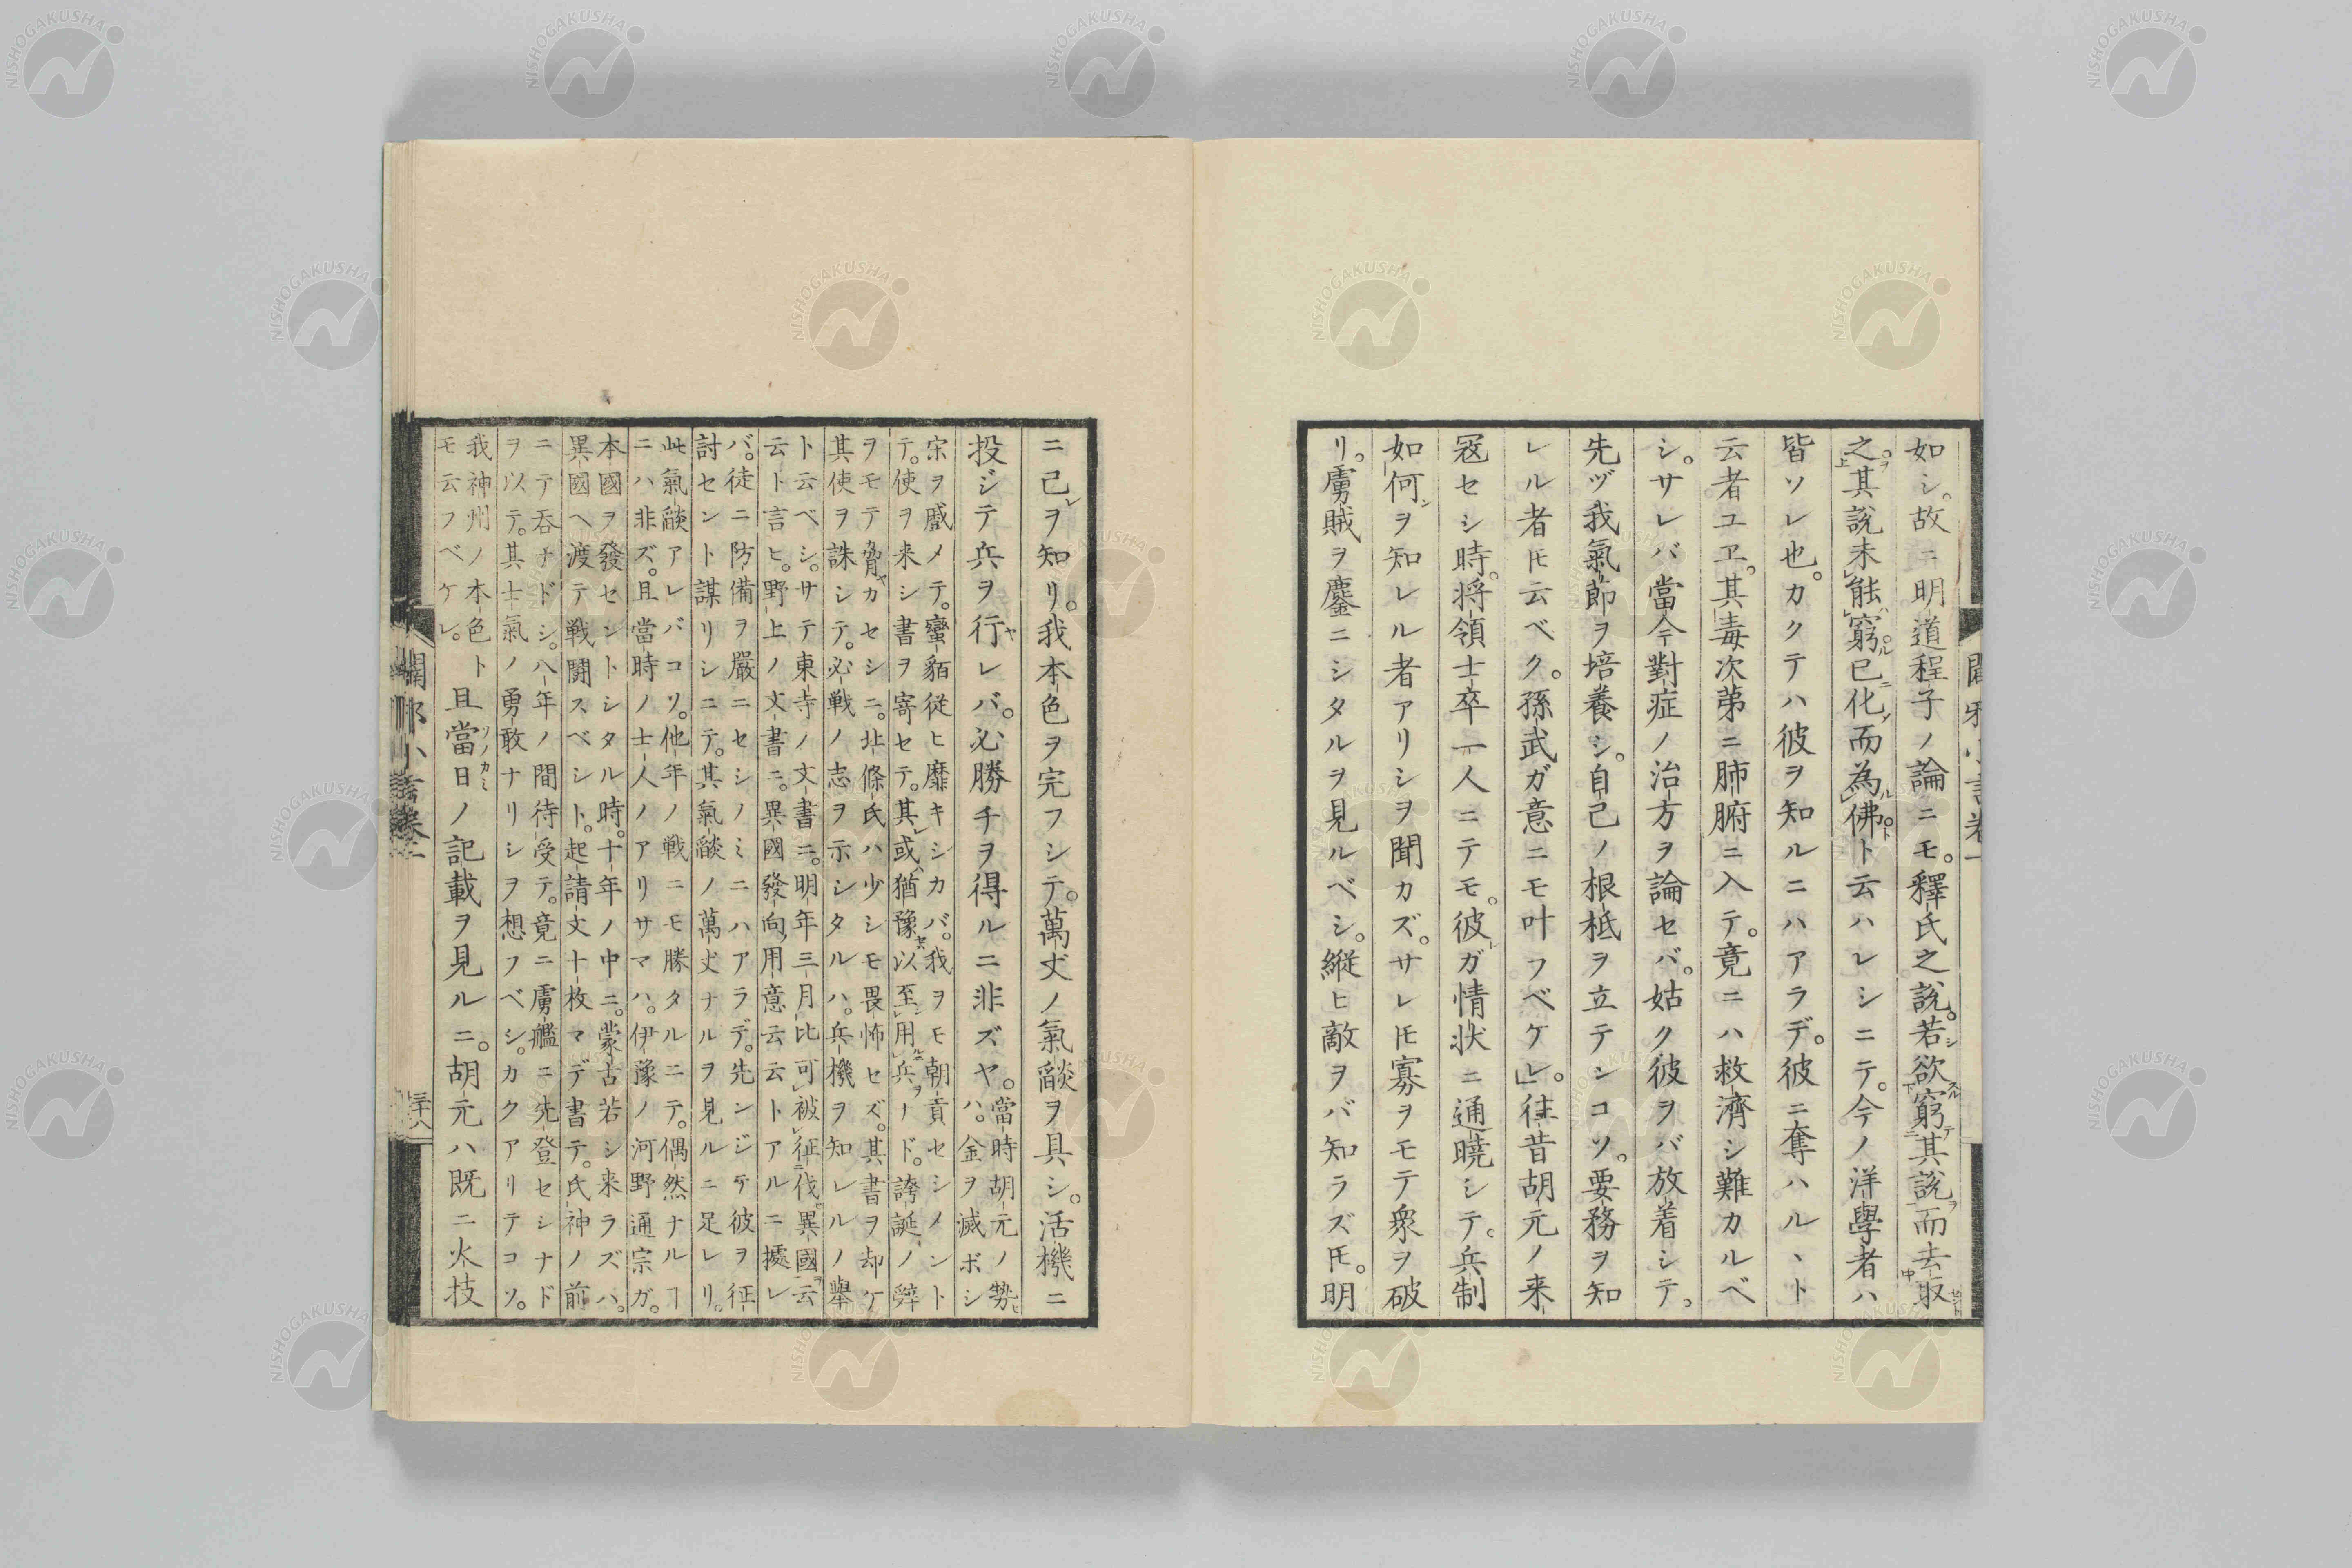 如シ。故ニ明道程子ノ論ニモ。釋氏之說。若欲窮其說而去取
之。其說未能窮已化而為佛ト云ハレシニテ。今ノ洋學者ハ
皆ソレ也。カクテハ彼ヲ知ルニハアラデ。彼ニ奪ハルヽト
云者ユヱ。其毒次第ニ肺腑ニ入テ。竟ニハ救濟シ難カルベ
シ。サレバ當今對症ノ治方ヲ論セバ。姑ク彼ヲバ放着シテ。
先ヅ我氣節ヲ培養シ。自己ノ根柢ヲ立テンコソ。要務ヲ知
レル者ト云ベク。孫武ガ意ニモ叶フベケレ。往昔胡元ノ来
冦セシ時。将領士卒一人ニテモ。彼ガ情状ニ通曉シテ。兵制
如何ヲ知レル者アリシヲ聞カズ。サレ𪜈寡ヲモテ衆ヲ破
リ。虜賊ヲ鏖ニシタルヲ見ルベシ。縱ヒ敵ヲバ知ラズ𪜈。明
ニ己ヲ知リ。我本色ヲ完フシテ。萬丈ノ氣燄ヲ具シ。活機ニ
投ジテ兵ヲ行レバ。必勝チヲ得ルニ非ズヤ。當時胡元ノ勢ハ。金ヲ滅ボシ
宋ヲ蹙メテ。蠻貊從ヒ靡キシカバ。我ヲモ朝貢セシメント
テ。使ヲ来シ書ヲ寄セテ。其或猶豫以至用兵ナド。誇誕ノ辭
ヲモテ脅カセシニ。北條氏ハ少シモ畏怖セズ。其書ヲ却ケ
其使ヲ誅シテ。必戰ノ志ヲ示シタルハ。兵機ヲ知レルノ舉
ト云ベシ。サテ東寺ノ文書ニ。明年三月比可被征伐異國云
云ト言ヒ。野上ノ文書ニ。異國發向用意云云トアルニ據レ
バ。徒ニ防備ヲ嚴ニセシノミニハアラデ。先ンジテ彼ヲ征
討セント謀リシニテ。其氣燄ノ萬丈ナルヲ見ルニ足レリ。
此氣燄アレバコソ。他年ノ戰ニモ勝タルニテ。偶然ナルヿ
ニハ非ズ。且當時ノ士人ノアリサマハ。伊豫ノ河野通宗ガ。
本國ヲ發セントシタル時。十年ノ中ニ。蒙古若シ来ラズハ。
異國ヘ渡テ戰鬪スベシト。起請文十枚マデ書テ。氏神ノ前
ニテ呑ナドシ。八年ノ間待受テ。竟ニ虜艦ニ先登セシナド
ヲ以テ。其士氣ノ勇敢ナリシヲ想フベシ。カクアリテコソ。
我神州ノ本色ト
モ云フベケレ。
且當日ノ記載ヲ見ルニ。胡元ハ既ニ火技
闢邪小言卷二